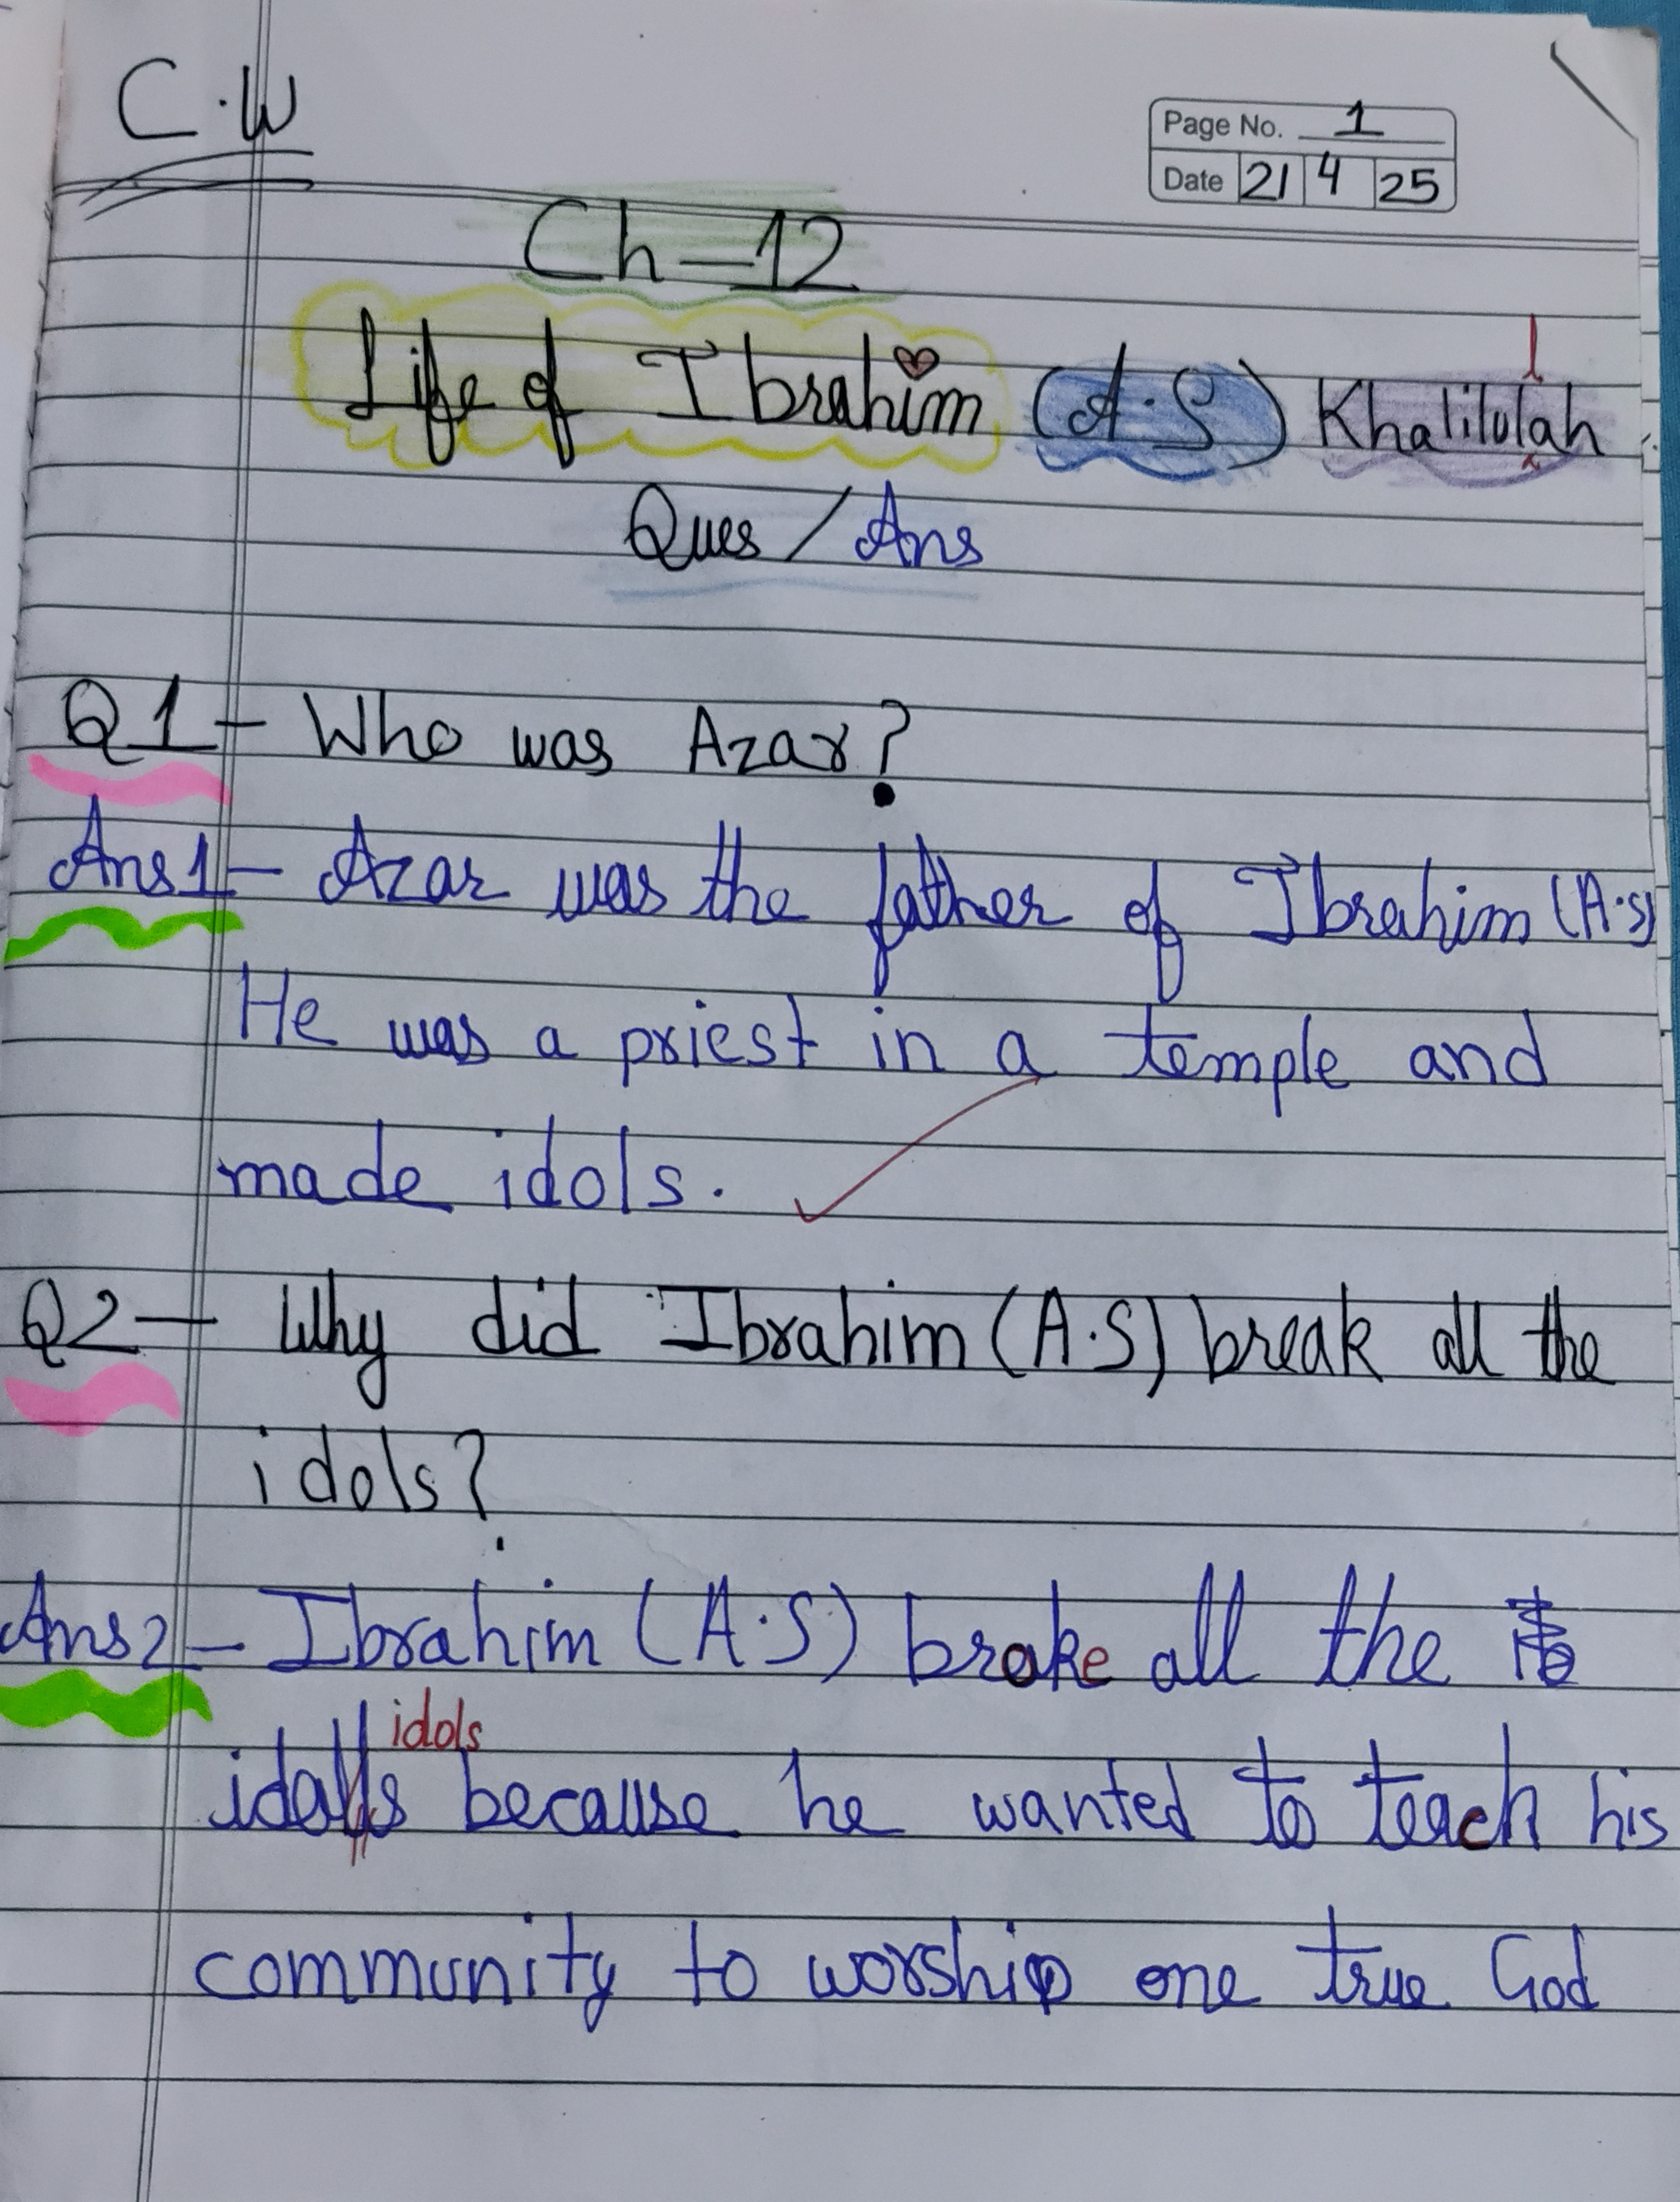 C.W
Page No. 1
Date 21 4 25
Ch-12
Life of Ibrahim (A.S) Khalilulah
l
Ques / Ans
Q1- Who was Azar?
Ans1- Azar was the father of Ibrahim (A.S)
He was a priest in a temple and
made idols.
Q2- Why did Ibrahim (A.S) break all the
idols?
Ans2- Ibrahim (A.S) brake all the
idols
idalls because he wanted to teach his
community to worship one true God